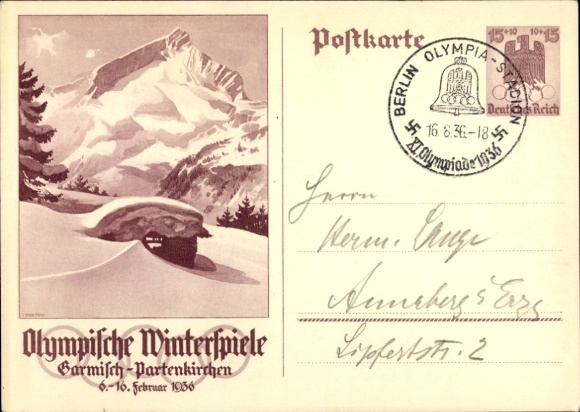 Postkarte
15+10 10+15
Deutsches Reich
BERLIN OLYMPIA-STADION
16.8.36.-18
XI. Olympiade 1936
Herrn
Herm. Lange
Annaberg i Erzg
Lipfertstr. 2
Olympische Winterspiele
Garmisch-Partenkirchen
6.-16. Februar 1936